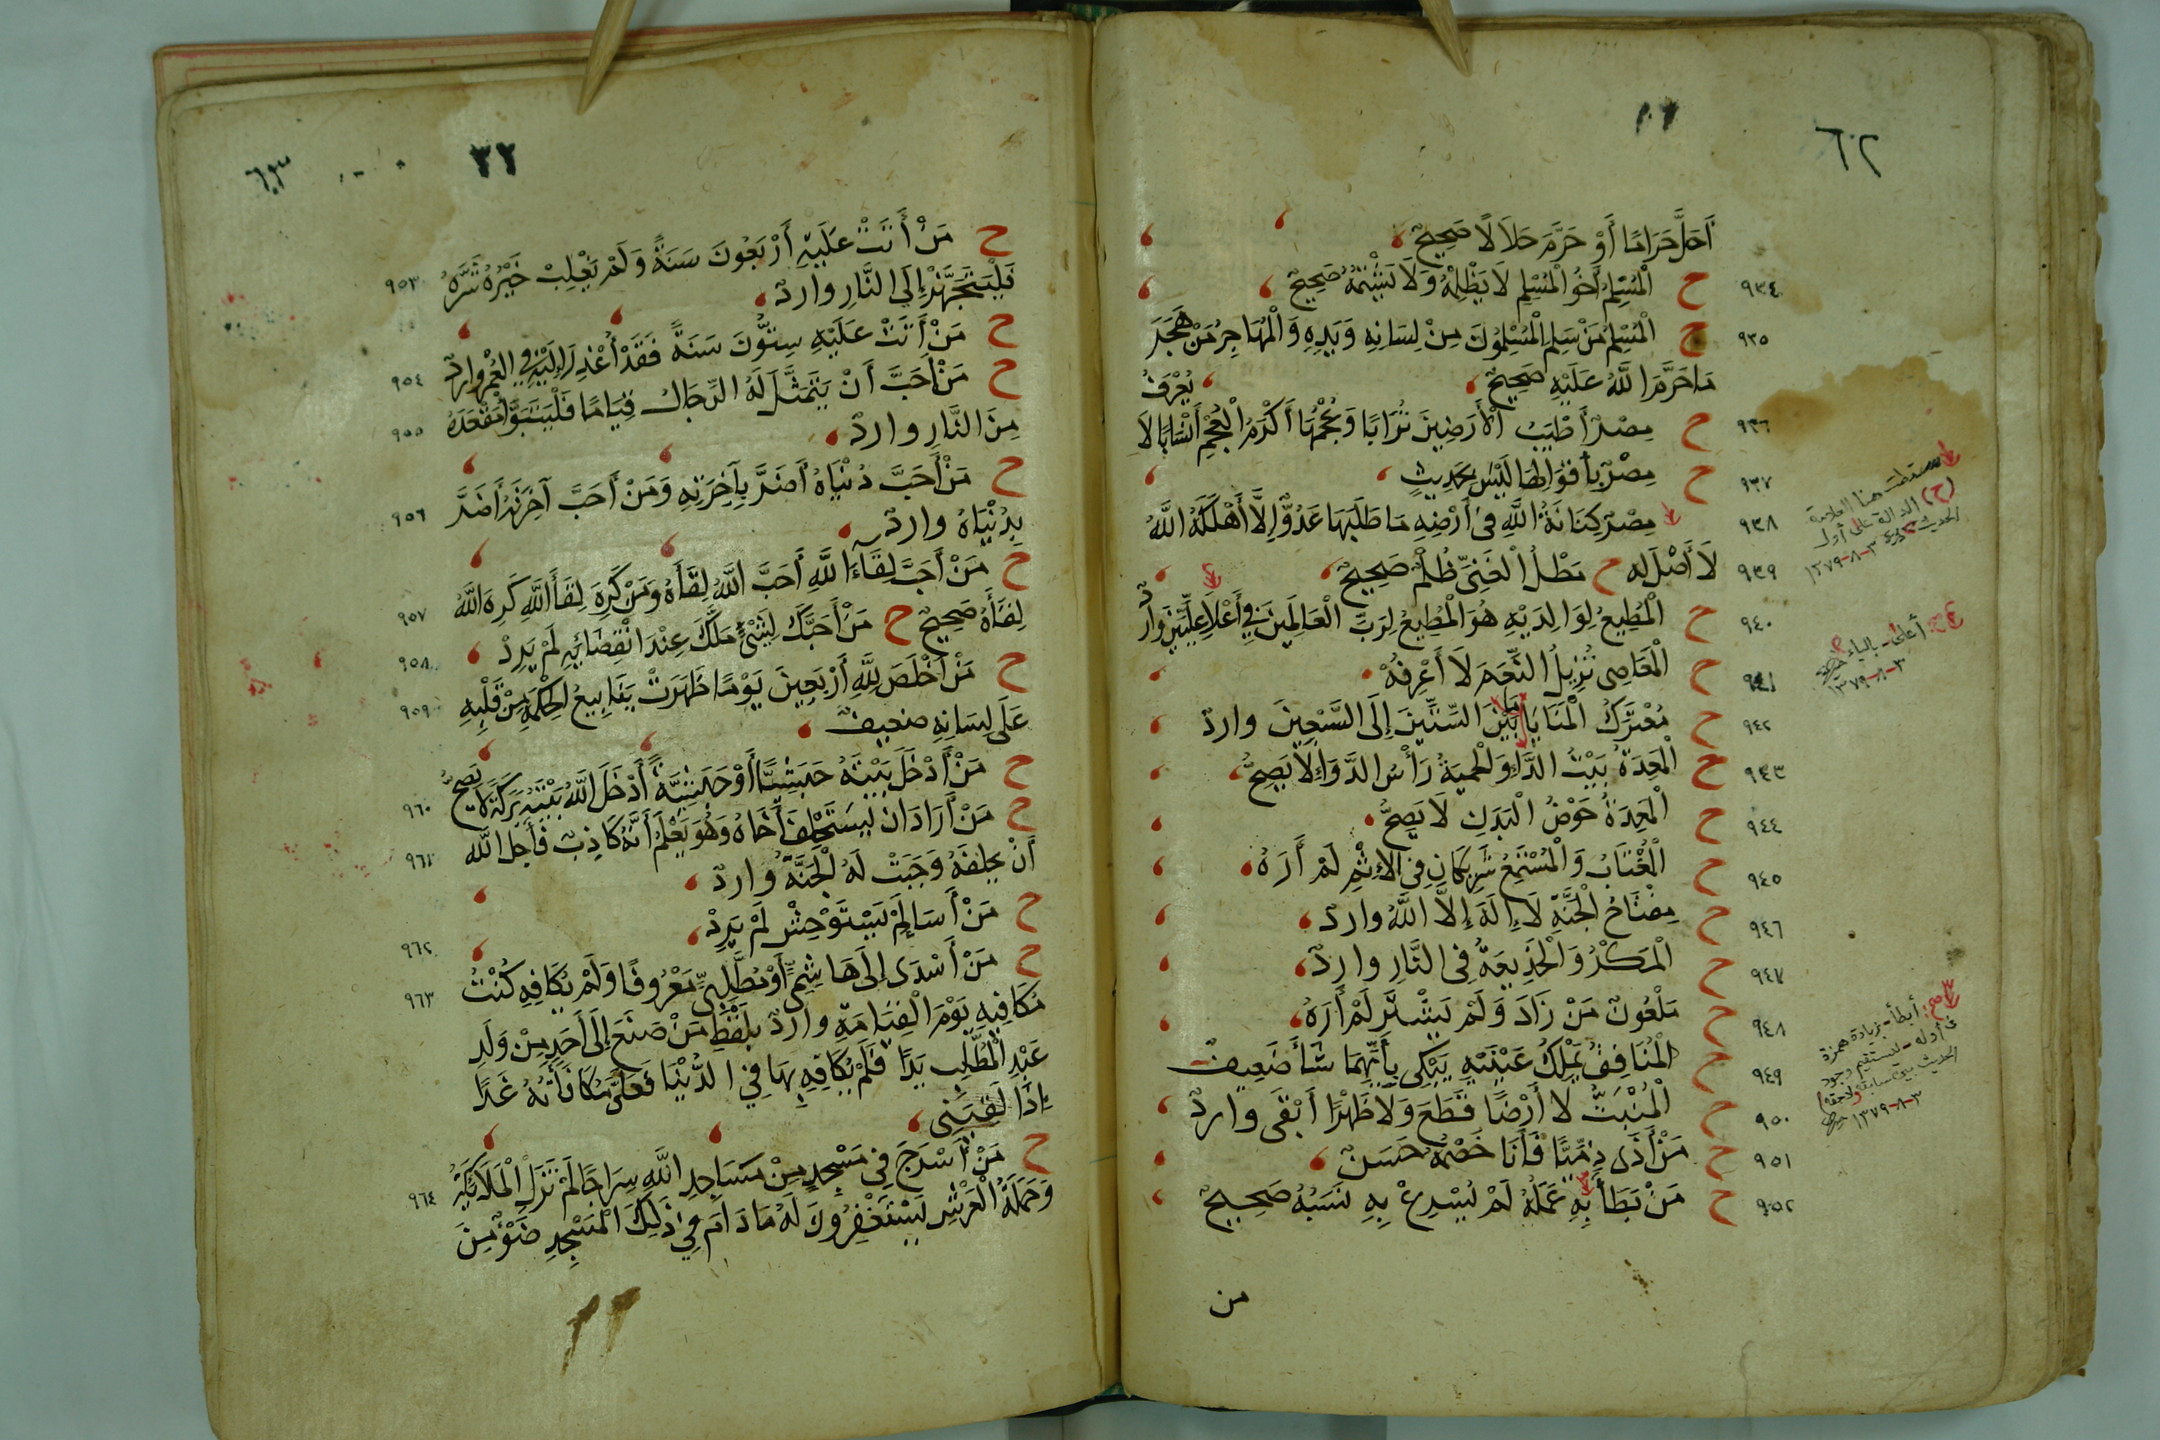 ٦٢
أَحَلَّ حَرَامًا أَوْ حَرَّمَ حَلَالًا صَحِيحٌ
٩٣٤ ح الْمُسْلِمُ أَخُو الْمُسْلِمِ لَا يَظْلِمُهُ وَلَا يَشْتِمُهُ صَحِيحٌ
٩٣٥ ح الْمُسْلِمُ مَنْ سَلِمَ الْمُسْلِمُونَ مِنْ لِسَانِهِ وَيَدِهِ وَالْمُهَاجِرُ مَنْ هَجَرَ
مَا حَرَّمَ اللَّهُ عَلَيْهِ صَحِيحٌ يُعْرَفُ
٩٣٦ ح مِصْرُ أَطْيَبُ الْأَرَضِينَ تُرَابًا وَعُجْمُهَا أَكْرَمُ الْعُجْمِ أَنْسَابًا لَا
٩٣٧ ح مِصْرُ بِأَفْوَاهِهَا لَيْسَ بِحَدِيثٍ
٩٣٨ مِصْرُ كِنَانَةُ اللَّهِ فِي أَرْضِهِ مَا طَلَبَهَا عَدُوٌّ إِلَّا أَهْلَكَهُ اللَّهُ
٩٣٩ لَا أَصْلَ لَهِ ح مَطْلُ الْغَنِيِّ ظُلْمٌ صَحِيحٌ
٩٤٠ ح الْمُطِيعُ لِوَالِدَيْهِ هُوَ الْمُطِيعُ لِرَبِّ الْعَالَمِينَ فِي أَعْلَا عِلِّيِّينَ وَارِدٌ
٩٤١ ح الْمَعَاصِي تُزِيلُ النِّعَمَ لَا أَعْرِفُهُ
٩٤٢ ح مُعْتَرَكُ الْمَنَايَا مَا بَيْنَ السِّتِّينَ إِلَى السَّبْعِينَ وارد
٩٤٣ ح الْمَعِدَةُ بَيْتُ الدَّاءِ وَالْحِمْيَةُ رَأْسُ الدَّوَاءِ لَا يَصِحُّ
٩٤٤ ح الْمَعِدَةُ حَوْضُ الْبَدَنِ لَا يَصِحُّ
٩٤٥ ح الْمُغْتَابُ وَالْمُسْتَمِعُ شَرِيكَانِ فِي الْإِثْمِ لَمْ أَرَهُ
٩٤٦ ح مِفْتَاحُ الْجَنَّةِ لَا إِلَهَ إِلَّا اللَّهُ وارد
٩٤٧ ح الْمَكْرُ وَالْخَدِيعَةُ فِي النَّارِ وارِدٌ
٩٤٨ ح مَلْعُونٌ مَنْ زَادَ وَلَمْ يَشْتَرِ لَمْ أَرَهُ
٩٤٩ ح الْمُنَافِقُ يَمْلِكُ عَيْنَيْهِ يَبْكِي بِأَيِّهِمَا شَأَ ضَعِيفٌ
٩٥٠ ح الْمُنْبَتُّ لَا أَرْضًا قَطَعَ وَلَا ظَهْرًا أَبْقَى وارِدٌ
٩٥١ ح مَنْ أَذَى ذِمِّيًّا فَأَنَا خَصْمُهُ حَسَنٌ
٩٥٢ ح مَنْ بَطَأَ بِهِ عَمَلُهُ لَمْ يُسْرِعْ بِهِ نَسَبُهُ صَحِيحٌ
من
سقطت هنا العلامة
(ح) الدالة على أول
الحديث
٣-٨-١٣٧٩
أعلى - بالياء
٣-٨-١٣٧٩
أبطأ - بزيادة همزة
في أوله - ليستقيم وجود
الحديث بين سابقه ولاحقه
٣-٨-١٣٧٩
٦٣
٩٥٣ ح مَنْ أَتَتْ عَلَيْهِ أَرْبَعُونَ سَنَةً وَلَمْ يَغْلِبْ خَيْرُهُ شَرَّهُ
فَلْيَتَجَهَّزْ إِلَى النَّارِ وارد
٩٥٤ ح مَنْ أَتَتْ عَلَيْهِ سِتُّونَ سَنَةً فَقَدْ أُعْذِرَ إِلَيْهِ فِي الْعُمُرِ وارد
٩٥٥ ح مَنْ أَحَبَّ أَنْ يَتَمَثَّلَ لَهُ الرِّجَالُ قِيَامًا فَلْيَتَبَوَّأْ مَقْعَدَهُ
مِنَ النَّارِ وارد
٩٥٦ ح مَنْ أَحَبَّ دُنْيَاهُ أَضَرَّ بِآخِرَتِهِ وَمَنْ أَحَبَّ آخِرَتَهُ أَضَرَّ
بِدُنْيَاهُ وارد
٩٥٧ ح مَنْ أَحَبَّ لِقَاءَ اللَّهِ أَحَبَّ اللَّهُ لِقَاءَهُ وَمَنْ كَرِهَ لِقَاءَ اللَّهِ كَرِهَ اللَّهُ
٩٥٨ لِقَاءَهُ صَحِيحٌ ح مَنْ أَحَبَّكَ لِشَيْءٍ مَلَّكَ عِنْدَ انْقِضَائِهِ لَمْ يَرِدْ
٩٥٩ ح مَنْ أَخْلَصَ لِلَّهِ أَرْبَعِينَ يَوْمًا ظَهَرَتْ يَنَابِيعُ الْحِكْمَةِ مِنْ قَلْبِهِ
عَلَى لِسَانِهِ ضَعِيفٌ
٩٦٠ ح مَنْ أَدْخَلَ بَيْتَهُ حَبَشِيًّا أَوْ حَبَشِيَّةً أَدْخَلَ اللَّهُ بَيْتَهُ بَرَكَةً لَا يَصِحُّ
٩٦١ ح مَنْ أَرَادَ أَنْ يَسْتَحْلِفَ أَخَاهُ وَهُوَ يَعْلَمُ أَنَّهُ كَاذِبٌ فَأَجَلَّ اللَّه
أَنْ يُحْلِفَهُ وَجَبَتْ لَهُ الْجَنَّةُ وارد
٩٦٢ ح مَنْ أَسَا لِمَ يَسْتَوْحِشْ لَمْ يَرِدْ
٩٦٣ ح مَنْ أَسْدَى إِلَى هَاشِمِيٍّ أَوْ مُطَّلِبِيٍّ مَعْرُوفًا وَلَمْ يُكَافِهِ كُنْتُ
مُكَافِيهِ يَوْمَ الْقِيَامَةِ وارد بِلَفْظِ مَنْ صَنَعَ إِلَى أَحَدٍ مِنْ وَلَدِ
عَبْدِ الْمُطَّلِبِ يَدًا فَلَمْ يُكَافِهِ بِهَا فِي الدُّنْيَا فَعَلَيَّ مُكَافَأَتُهُ غَدًا
إِذَا لَقِيَنِي
٩٦٤ ح مَنْ أَسْرَجَ فِي مَسْجِدٍ مِنْ مَسَاجِدِ اللَّهِ سِرَاجًا لَمْ تَزَلِ الْمَلَائِكَةُ
وَحَمَلَةُ الْعَرْشِ يَسْتَغْفِرُونَ لَهُ مَا دَامَ فِي ذَلِكَ الْمَسْجِدِ ضَوْءٌ مِنَ